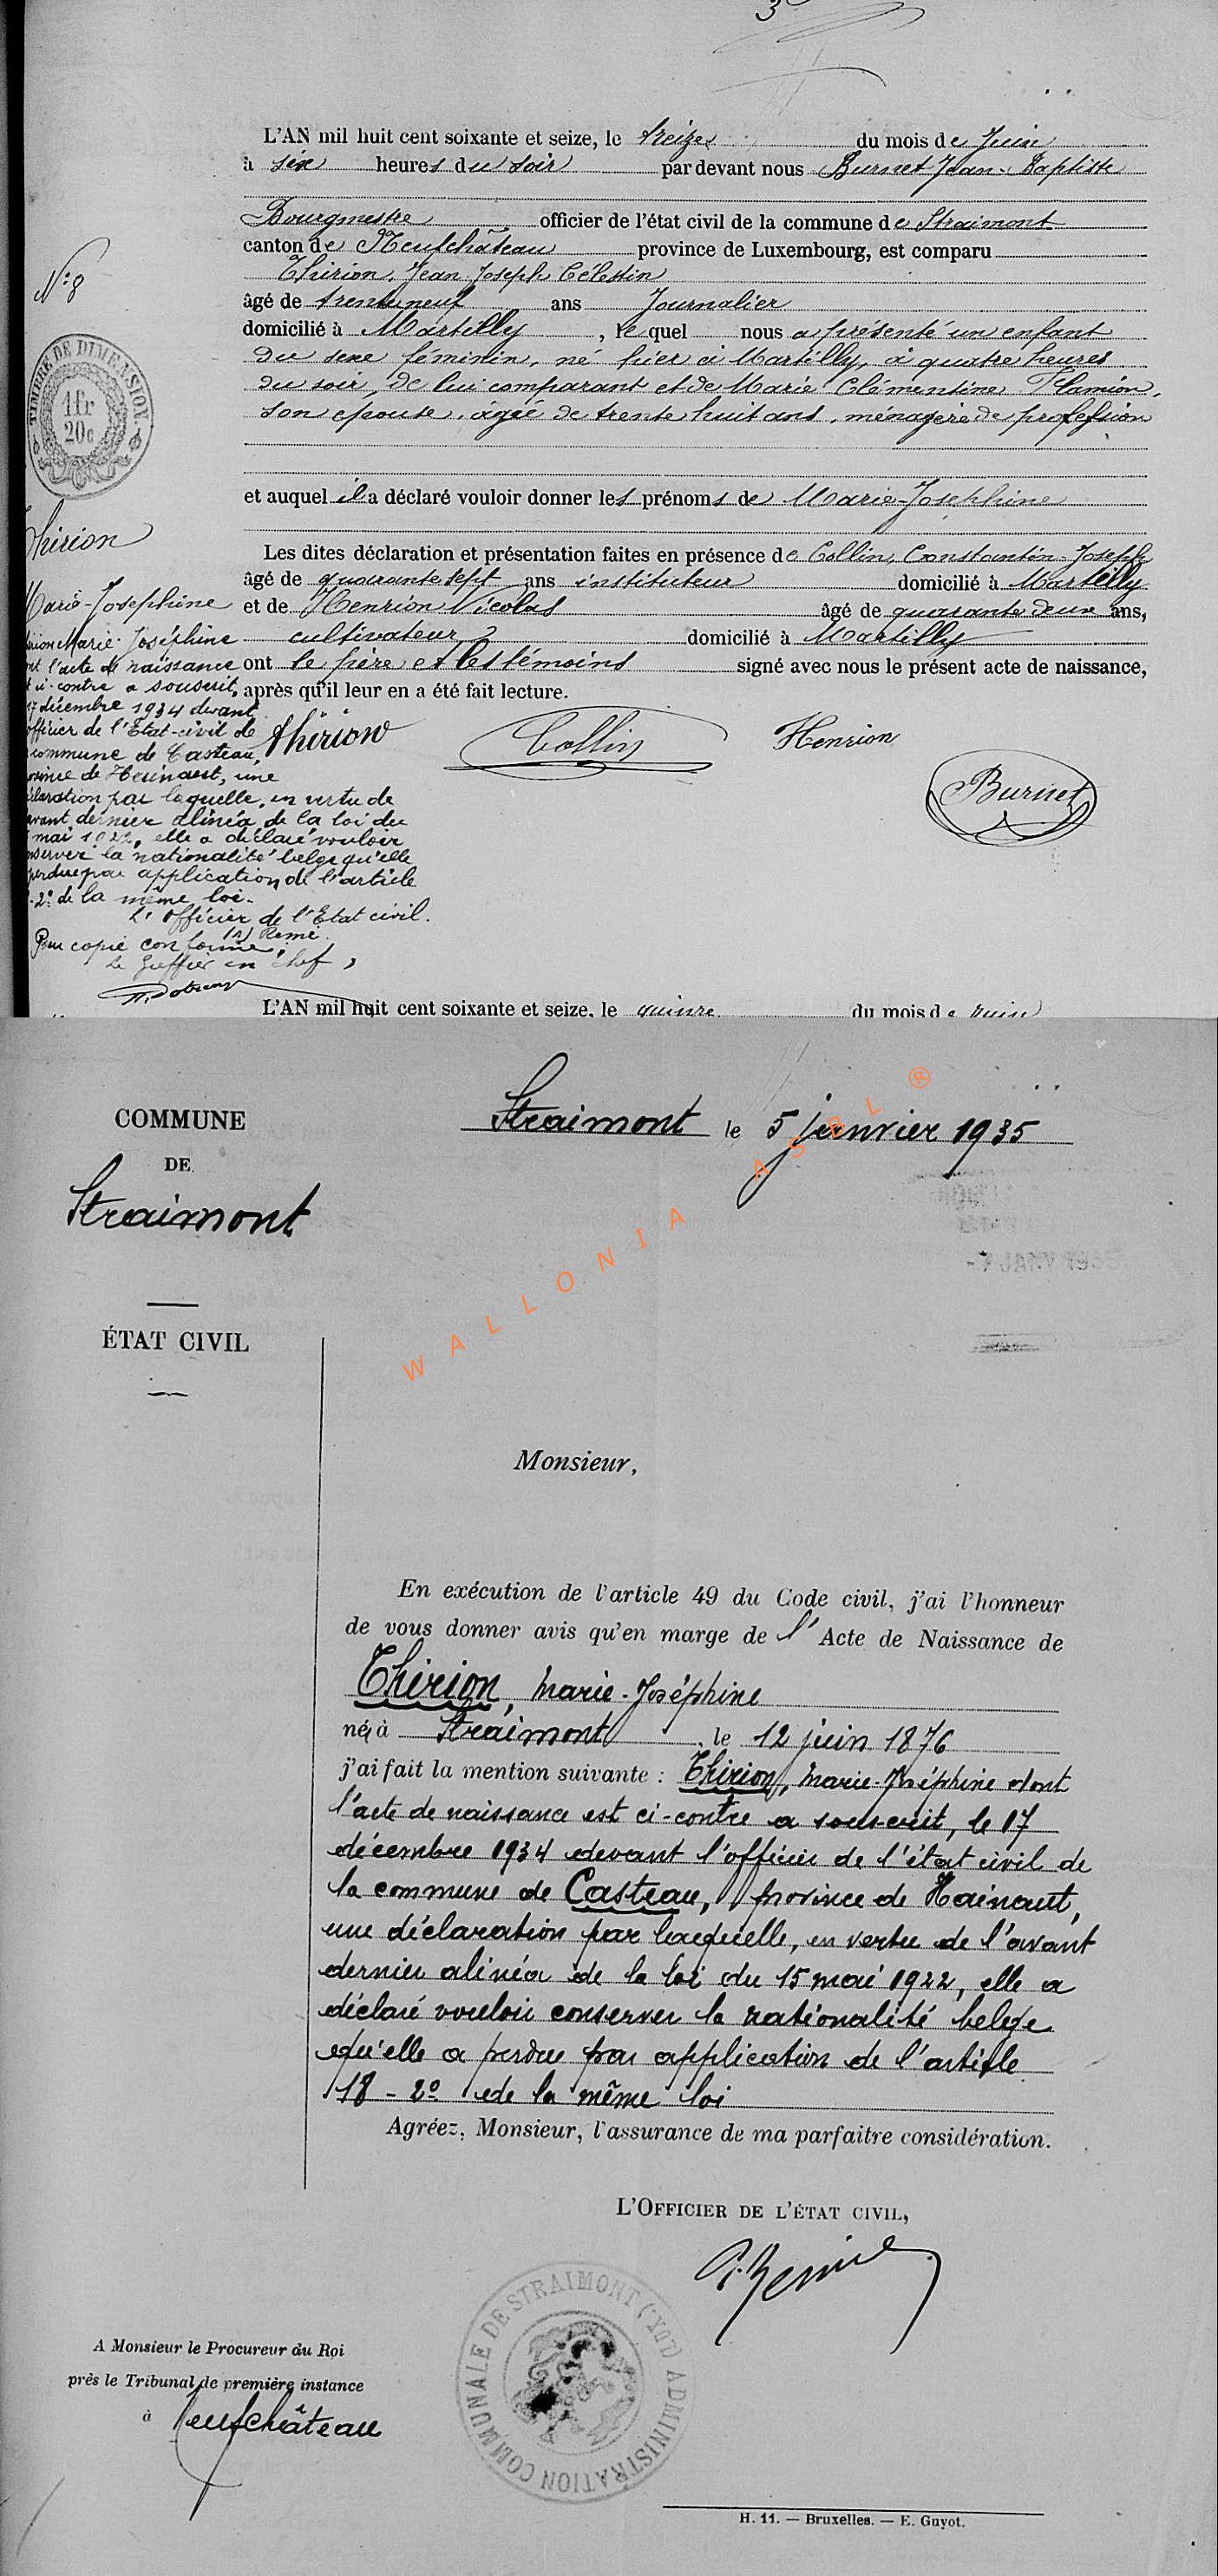 3
L'AN mil huit cent soixante et seize, le treize du mois de Juin
à six heures du soir par devant nous Burnet Jean-Baptiste
Bourgmestre officier de l'état civil de la commune de Straimont
canton de Neufchâteau province de Luxembourg, est comparu
Thirion, Jean Joseph Célestin
âgé de trente neuf ans Journalier
domicilié à Martilly, lequel nous a présenté un enfant
du sexe féminin, né hier à Martilly, à quatre heures
du soir, de lui comparant et de Marie Clémentine Flamion,
son épouse, âgée de trente huit ans, ménagère de profession
et auquel il a déclaré vouloir donner les prénoms de Marie-Josephine
Les dites déclaration et présentation faites en présence de Collin, Constantin-Joseph
âgé de quarante sept ans instituteur domicilié à Martilly
et de Henrion Nicolas âgé de quarante deux ans,
cultivateur domicilié à Martilly
ont le père et les témoins signé avec nous le présent acte de naissance,
après qu'il leur en a été fait lecture.
Thirion Collin Henrion
Burnet
N° 8
TIMBRE DE DIMENSION.
1fr
20c
Thirion
Marie-Josephine
Marie-Joséphine
l'acte de naissance
ci-contre a souscrit,
17 décembre 1934 devant
officier de l'Etat-civil de
commune de Casteau,
de Hainaut, une
déclaration par laquelle, en vertu de
avant dernier alinéa de la loi du
mai 1922, elle a déclaré vouloir
conserver la nationalité belge qu'elle
perdue par application de l'article
2° de la même loi.
L'Officier de l'Etat civil.
(s) Remi
Pour copie conforme,
Le Greffier en chef,
L'AN mil huit cent soixante et seize, le quinze du mois de juin
COMMUNE
DE
Straimont
ÉTAT CIVIL
Straimont le 5 janvier 1935
WALLONIA ASBL ®
Monsieur,
En exécution de l'article 49 du Code civil, j'ai l'honneur
de vous donner avis qu'en marge de l'Acte de Naissance de
Thirion, Marie-Joséphine
né à Straimont, le 12 juin 1876
j'ai fait la mention suivante : Thirion, Marie-Joséphine dont
l'acte de naissance est ci-contre a souscrit, le 17
décembre 1934 devant l'officier de l'état civil de
la commune de Casteau, province de Hainaut,
une déclaration par laquelle, en vertu de l'avant
dernier alinéa de la loi du 15 mai 1922, elle a
déclaré vouloir conserver la nationalité belge
qu'elle a perdue par application de l'article
18 - 2° de la même loi
Agréez, Monsieur, l'assurance de ma parfaitre considération.
L'OFFICIER DE L'ÉTAT CIVIL,
ADMINISTRATION COMMUNALE DE STRAIMONT (LUX.)
A Monsieur le Procureur du Roi
près le Tribunal de première instance
à Neufchâteau
H. 11. — Bruxelles. — E. Guyot.